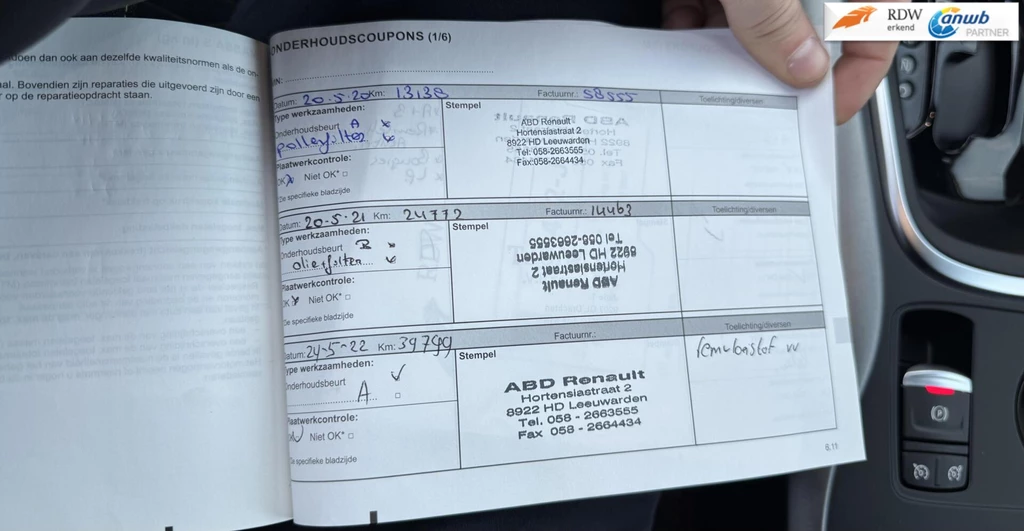 doen dan ook aan dezelfde kwaliteitsnormen als de on-
al. Bovendien zijn reparaties die uitgevoerd zijn door een
op de reparatieopdracht staan.
RDW
erkend
anwb
PARTNER
ONDERHOUDSCOUPONS (1/6)
Datum: 20-5-20 Km: 13138 Factuurnr.: 58555 Toelichting/diversen
Type werkzaamheden: Stempel
Onderhoudsbeurt A
pollenfilter
Plaatwerkcontrole:
OK Niet OK*
De specifieke bladzijde
ABD Renault
Hortensiastraat 2
8922 HD Leeuwarden
Tel: 058-2663565
Fax:058-2664434
Datum: 20-5-21 Km: 24772 Factuurnr.: 14463 Toelichting/diversen
Type werkzaamheden: Stempel
Onderhoudsbeurt B
oliefilter
Plaatwerkcontrole:
OK Niet OK*
De specifieke bladzijde
ABD Renault
Hortensiastraat 2
8922 HD Leeuwarden
Tel 058-2663555
Datum: 24-5-22 Km: 39799 Factuurnr.: Toelichting/diversen
Type werkzaamheden: Stempel
Onderhoudsbeurt
A
Plaatwerkcontrole:
Niet OK*
De specifieke bladzijde
ABD Renault
Hortensiastraat 2
8922 HD Leeuwarden
Tel. 058 - 2663555
Fax 058 - 2664434
remvloeistof vv
6.11